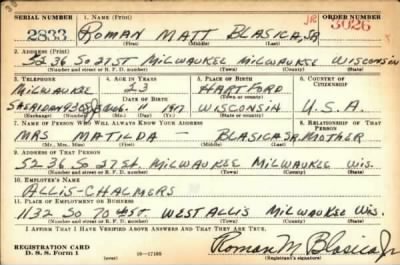 SERIAL NUMBER 1. NAME (Print) ORDER NUMBER
2833 ROMAN MATT BLASICA, SR JR 3026
(First) (Middle) (Last)
2. ADDRESS (Print)
5236 SO 27 ST MILWAUKEE MILWAUKEE WISCONSIN
(Number and street or R. F. D. number) (Town) (County) (State)
3. TELEPHONE 4. AGE IN YEARS 5. PLACE OF BIRTH 6. COUNTRY OF CITIZENSHIP
MILWAUKEE 23 HARTFORD
DATE OF BIRTH
SHERIDAN AUG. WISCONSIN U.S.A.
(Exchange) (Number) (Mo.) (Day) (Yr.) (State or country)
7. NAME OF PERSON WHO WILL ALWAYS KNOW YOUR ADDRESS 8. RELATIONSHIP OF THAT PERSON
MRS MATILDA — BLASICA SR. MOTHER
(Mr., Mrs., Miss) (First) (Middle) (Last)
9. ADDRESS OF THAT PERSON
5236 SO 27 St MILWAUKEE MILWAUKEE WIS.
(Number and street or R. F. D. number) (Town) (County) (State)
10. EMPLOYER'S NAME
ALLIS-CHALMERS
11. PLACE OF EMPLOYMENT OR BUSINESS
1132 SO 70 ST WEST ALLIS MILWAUKEE WIS.
(Number and street or R. F. D. number) (Town) (County) (State)
I AFFIRM THAT I HAVE VERIFIED ABOVE ANSWERS AND THAT THEY ARE TRUE.
REGISTRATION CARD
D. S. S. Form 1 16-17105 Roman M Blasica Jr